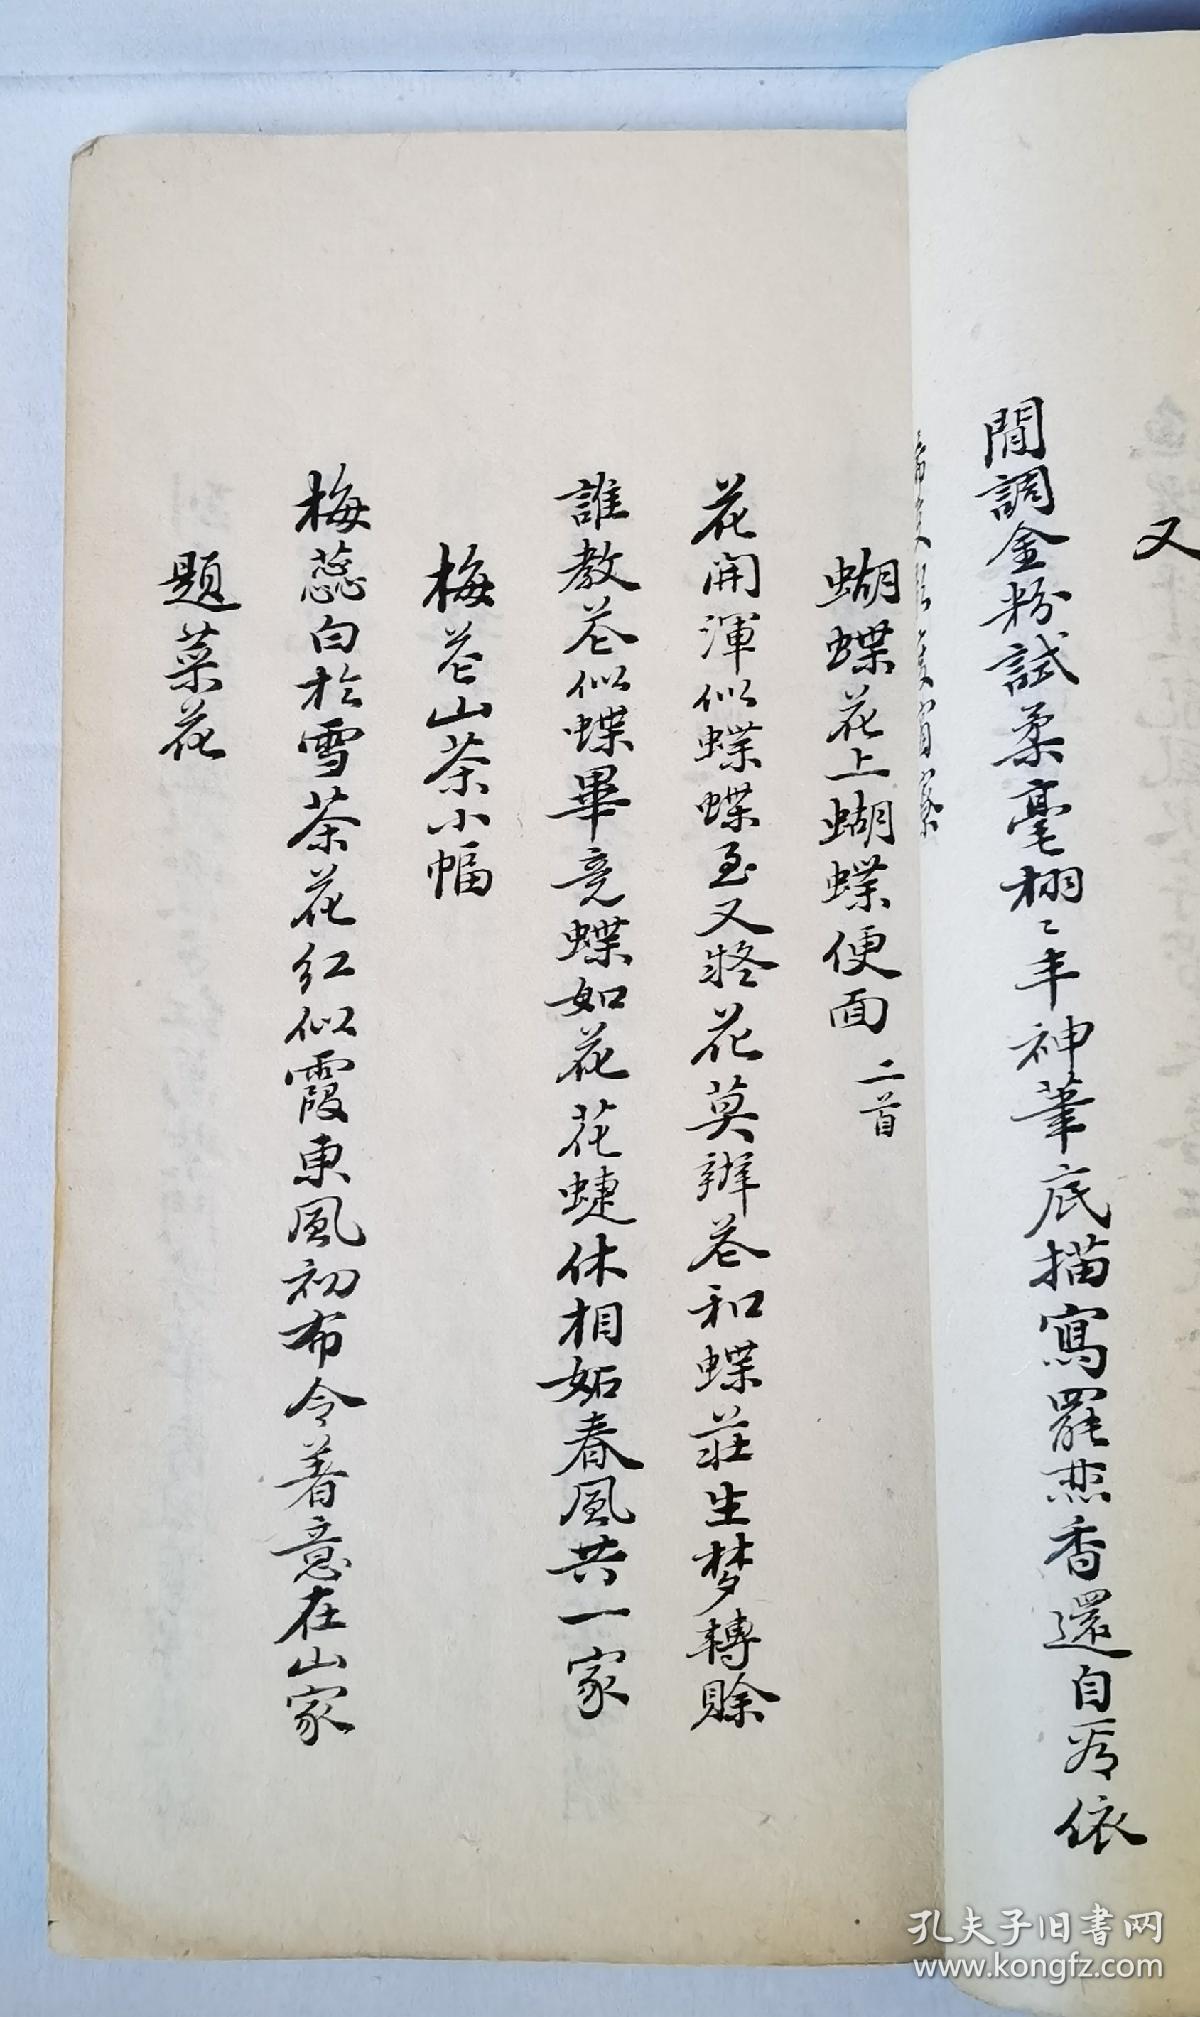 又
閒調金粉試柔毫栩〻丰神筆底描寫罷恋香還自有依
蝴蝶花上蝴蝶便面 二首
花開渾似蝶蝶至又疑花莫辨花和蝶莊生梦轉賒
誰教花似蝶畢竟蝶如花花蜨休相妬春風共一家
梅花山茶小幅
梅蕊白於雪茶花红似霞東風初布令著意在山家
題菜花
孔夫子旧书网
www.kongfz.com